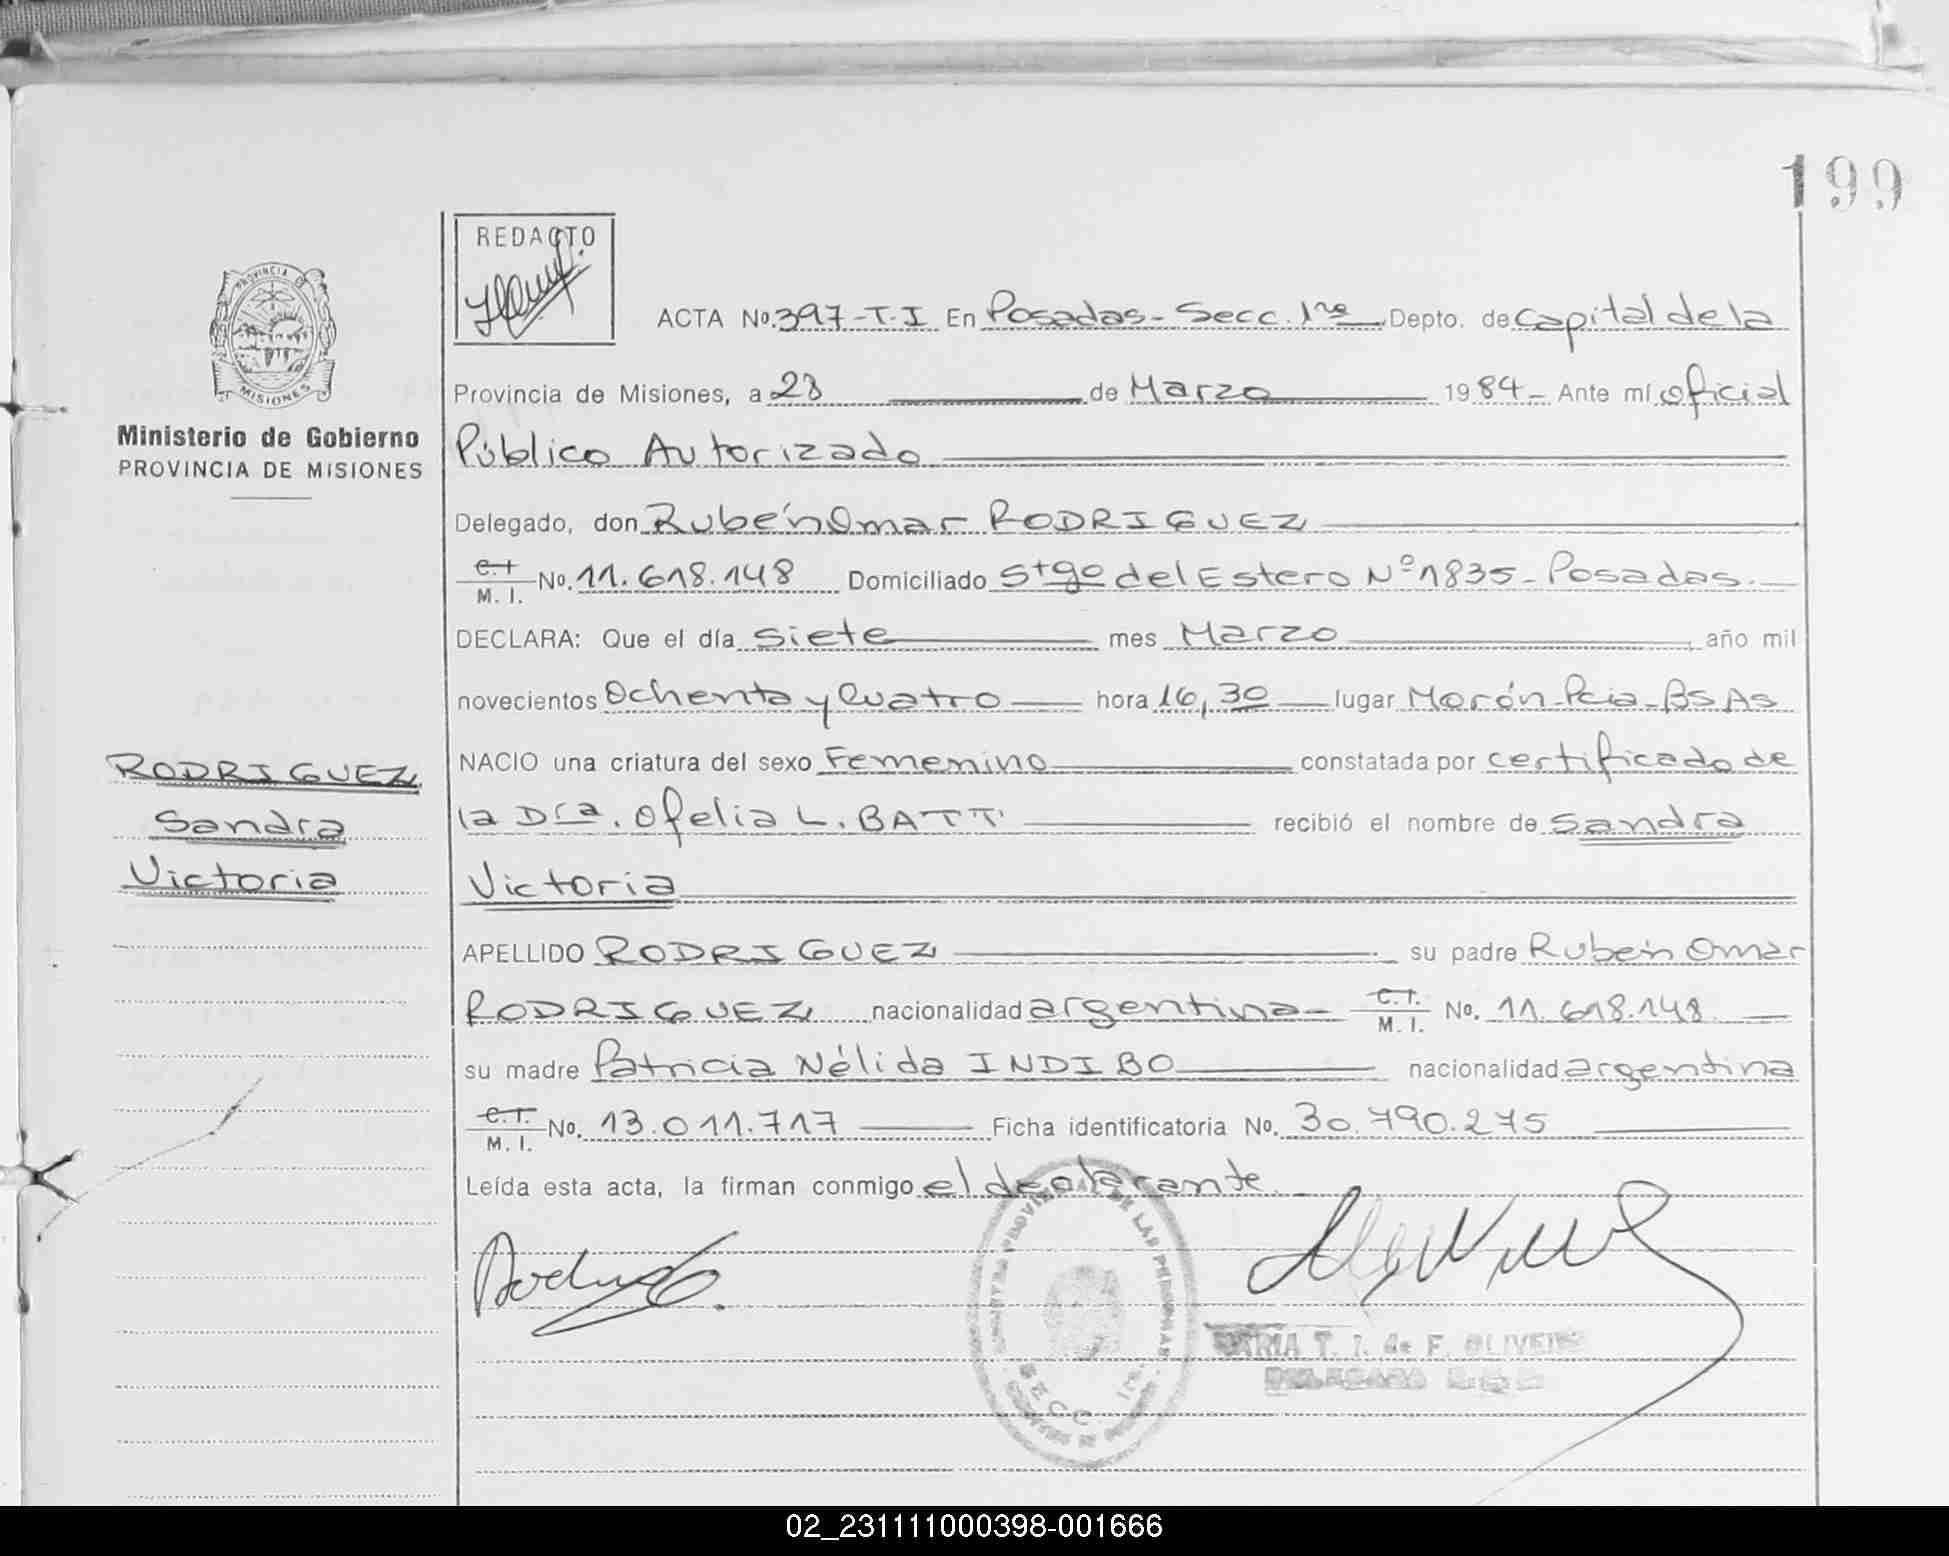 199
REDACTO
PROVINCIA DE
MISIONES
Ministerio de Gobierno
PROVINCIA DE MISIONES
ACTA No. 397-T.I En Posadas-Secc. 1ra Depto. de Capital de la
Provincia de Misiones, a 28 de Marzo 1984- Ante mí Oficial
Público Autorizado
Delegado, don Rubén Omar RODRIGUEZ
C.I M. I. No. 11.618.148 Domiciliado Stgo del Estero Nº 1835-Posadas.
DECLARA: Que el día Siete mes Marzo año mil
novecientos Ochenta y Cuatro hora 16,30 lugar Morón-Pcia-BS AS
NACIO una criatura del sexo Femenino constatada por certificado de
la Dra. Ofelia L. BATTI recibió el nombre de Sandra
Victoria
RODRIGUEZ
Sandra
Victoria
APELLIDO RODRIGUEZ su padre Rubén Omar
RODRIGUEZ nacionalidad argentina- C.I. M. I. No. 11.618.148
su madre Patricia Nélida INDIBO nacionalidad argentina
C.I. M. I. No. 13.011.717 Ficha identificatoria No. 30.790.275
Leída esta acta, la firman conmigo el declarante
DE LAS PERSONAS
SECC. 1ra.
MARIA T. I. de F. OLIVEIRA
DELEGADA
02_231111000398-001666